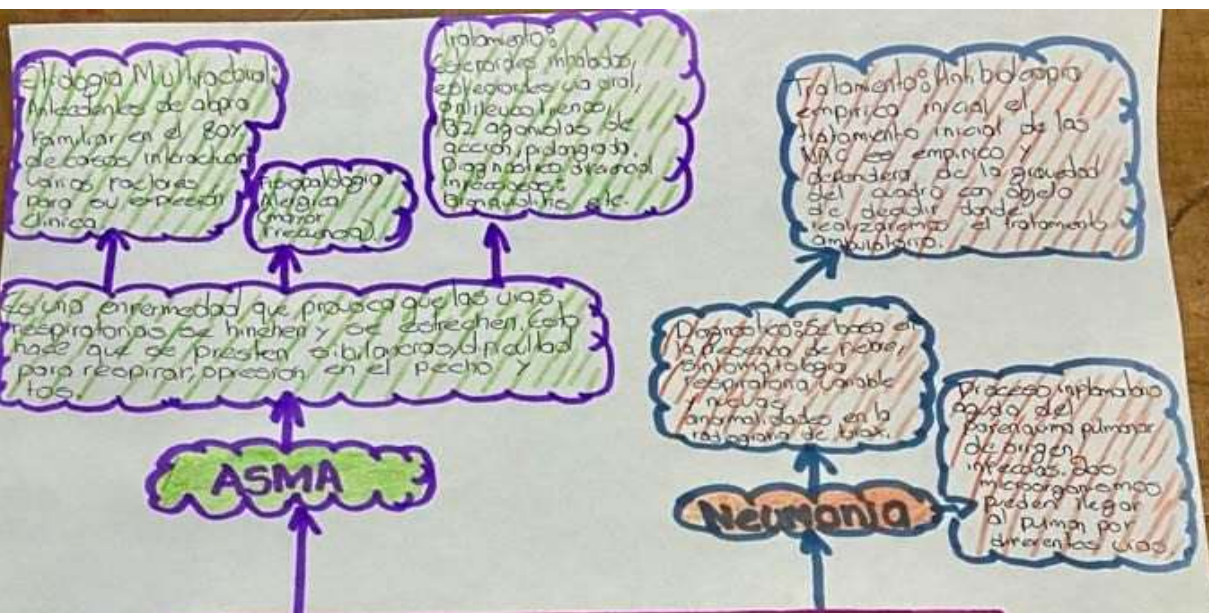 Etiología Multifactorial:
Antecedentes de atopia
familiar en el 80%
de casos interactuan
varios factores
para su expresión
clinica.
Fisiopatologia
Alergica
(mayor
frecuencia).
Tratamiento:
esteroides inhalados,
esteroides via oral,
antileucotrienos,
B2 agonistas de
acción prolongada.
Diagnostico diferencial
infecciosos:
Bronquiolitis etc.
Es una enfermedad que provoca que las vias
respiratorias se hinchen y se estrechen. Esto
hace que se presten sibilancias, dificultad
para respirar, opresion en el pecho y
tos.
ASMA
Tratamiento: Antibioterapia
empirica inicial el
tratamiento inicial de las
NAC es empirico y
dependera de la gravedad
del cuadro con objeto
de decidir donde
realizaremos el tratamiento
ambulatorio.
Diagnostico: Se basa en
la presencia de fiebre,
sintomatologia
respiratoria variable
y nuevas
anormalidades en la
radiografia de torax.
Neumonia
Proceso inflamatorio
agudo del
parenquima pulmonar
de origen
infeccioso. Los
microorganismos
pueden llegar
al pulmon por
diferentes vias.